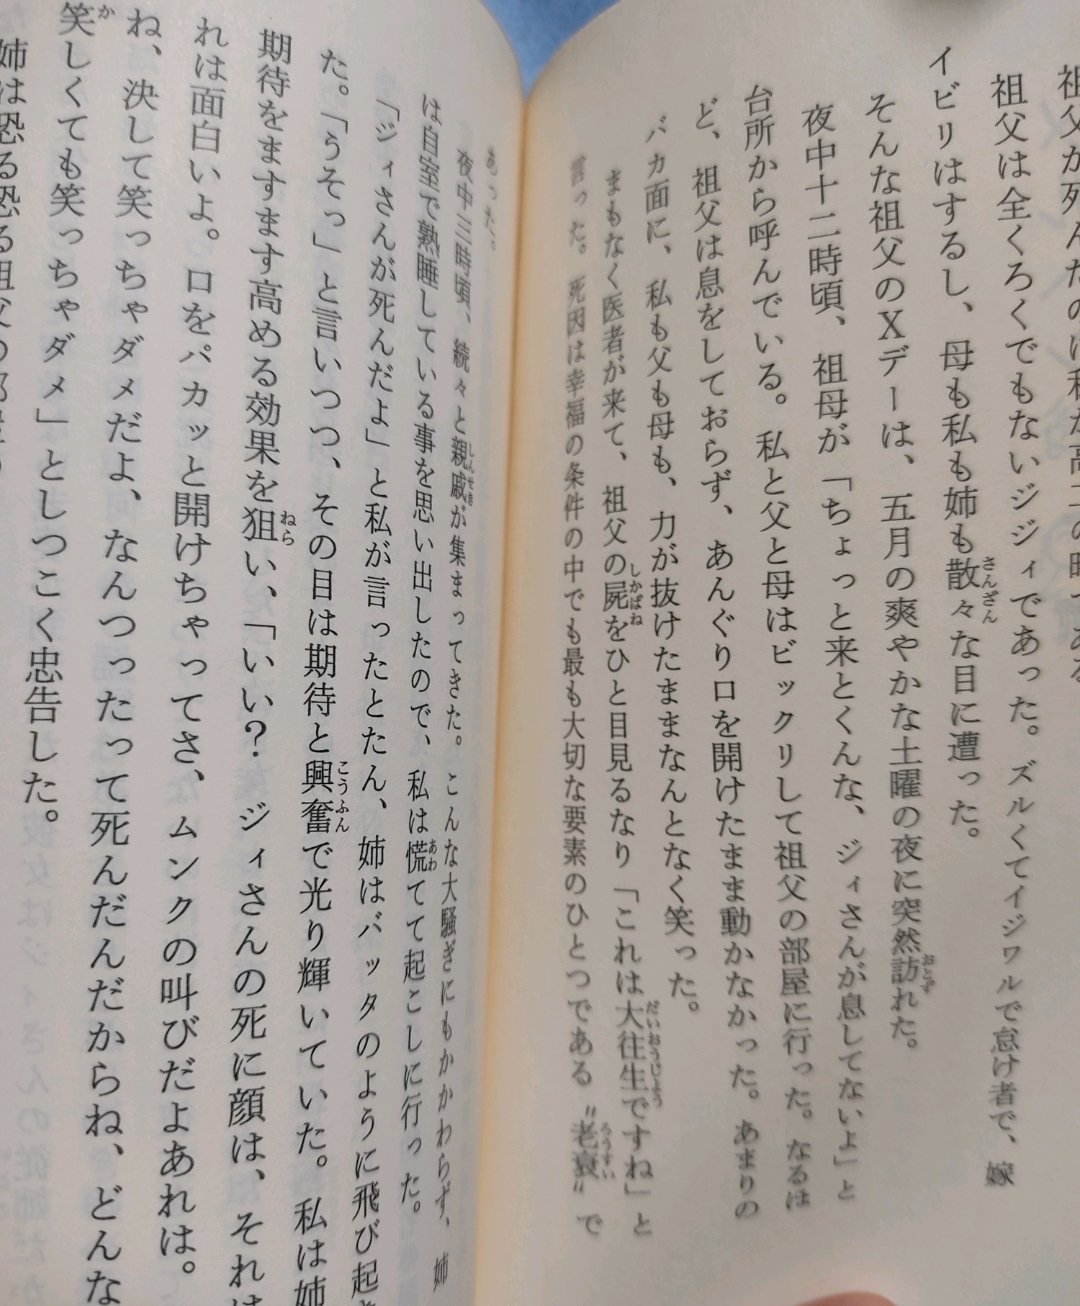 祖父が死んだのは私が高二の時である
祖父は全くろくでもないジジィであった。ズルくてイジワルで怠け者で、嫁
イビリはするし、母も私も姉も散々な目に遭った。
そんな祖父のXデーは、五月の爽やかな土曜の夜に突然訪れた。
夜中十二時頃、祖母が「ちょっと来とくんな、ジィさんが息してないよ」と
台所から呼んでいる。私と父と母はビックリして祖父の部屋に行った。なるほ
ど、祖父は息をしておらず、あんぐり口を開けたまま動かなかった。あまりの
バカ面に、私も父も母も、力が抜けたままなんとなく笑った。
まもなく医者が来て、祖父の屍をひと目見るなり「これは大往生ですね」と
言った。死因は幸福の条件の中でも最も大切な要素のひとつである〝老衰〟で
あった。
夜中三時頃、続々と親戚が集まってきた。こんな大騒ぎにもかかわらず、姉
は自室で熟睡している事を思い出したので、私は慌てて起こしに行った。
「ジィさんが死んだよ」と私が言ったとたん、姉はバッタのように飛び起き
た。「うそっ」と言いつつ、その目は期待と興奮で光り輝いていた。私は姉
期待をますます高める効果を狙い、「いい？ ジィさんの死に顔は、それは
れは面白いよ。口をパカッと開けちゃってさ、ムンクの叫びだよあれは。
ね、決して笑っちゃダメだよ、なんつったって死んだんだからね、どんな
笑しくても笑っちゃダメ」としつこく忠告した。
姉は恐る恐る祖父の部屋